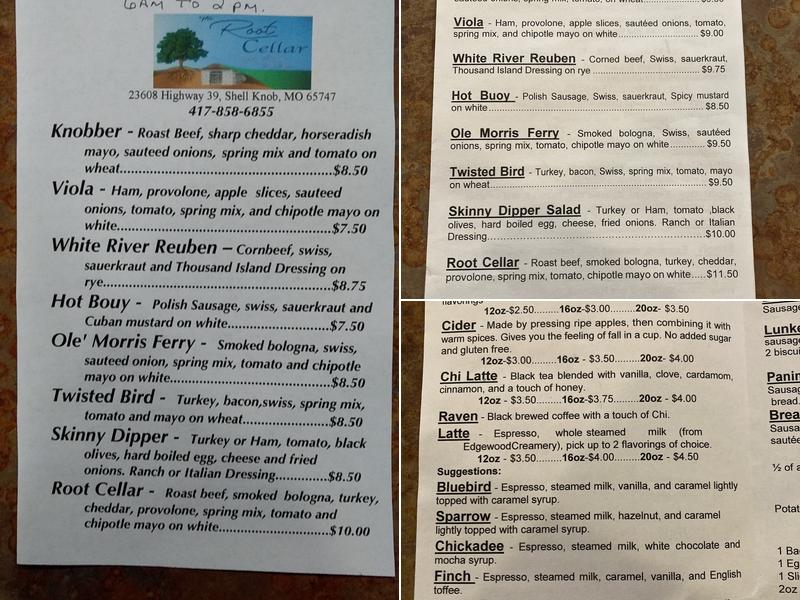 6AM TO 2 PM.
The Root
Cellar
23608 Highway 39, Shell Knob, MO 65747
417-858-6855
Knobber - Roast Beef, sharp cheddar, horseradish
mayo, sauteed onions, spring mix and tomato on
wheat....................................................$8.50
Viola - Ham, provolone, apple slices, sauteed
onions, tomato, spring mix, and chipotle mayo on
white.....................................................$7.50
White River Reuben – Cornbeef, swiss,
sauerkraut and Thousand Island Dressing on
rye.........................................................$8.75
Hot Bouy - Polish Sausage, swiss, sauerkraut and
Cuban mustard on white.........................$7.50
Ole' Morris Ferry - Smoked bologna, swiss,
sauteed onion, spring mix, tomato and chipotle
mayo on white.......................................$8.50
Twisted Bird - Turkey, bacon,swiss, spring mix,
tomato and mayo on wheat.....................$8.50
Skinny Dipper - Turkey or Ham, tomato, black
olives, hard boiled egg, cheese and fried
onions. Ranch or Italian Dressing...............$8.50
Root Cellar - Roast beef, smoked bologna, turkey,
cheddar, provolone, spring mix, tomato and
chipotle mayo on white..........................$10.00
Viola - Ham, provolone, apple slices, sautéed onions, tomato,
spring mix, and chipotle mayo on white..........................$9.00
White River Reuben - Corned beef, Swiss, sauerkraut,
Thousand Island Dressing on rye ....................................$9.75
Hot Buoy - Polish Sausage, Swiss, sauerkraut, Spicy mustard
on white...........................................................................$8.50
Ole Morris Ferry - Smoked bologna, Swiss, sautéed
onions, spring mix, tomato, chipotle mayo on white............$9.50
Twisted Bird - Turkey, bacon, Swiss, spring mix, tomato, mayo
on wheat..........................................................................$9.50
Skinny Dipper Salad - Turkey or Ham, tomato ,black
olives, hard boiled egg, cheese, fried onions. Ranch or Italian
Dressing.........................................................................$10.00
Root Cellar - Roast beef, smoked bologna, turkey, cheddar,
provolone, spring mix, tomato, chipotle mayo on white.....$11.50
flavorings
12oz-$2.50.........16oz-$3.00.........20oz- $3.50
Cider - Made by pressing ripe apples, then combining it with
warm spices. Gives you the feeling of fall in a cup. No added sugar
and gluten free.
12oz-$3.00.........16oz - $3.50.........20oz- $4.00
Chi Latte - Black tea blended with vanilla, clove, cardamom,
cinnamon, and a touch of honey.
12oz - $3.50.........16oz-$3.75.........20oz - $4.00
Raven - Black brewed coffee with a touch of Chi.
Latte - Espresso, whole steamed milk (from
EdgewoodCreamery), pick up to 2 flavorings of choice.
12oz - $3.50.........16oz-$4.00.........20oz - $4.50
Suggestions:
Bluebird - Espresso, steamed milk, vanilla, and caramel lightly
topped with caramel syrup.
Sparrow - Espresso, steamed milk, hazelnut, and caramel
lightly topped with caramel syrup.
Chickadee - Espresso, steamed milk, white chocolate and
mocha syrup.
Finch - Espresso, steamed milk, caramel, vanilla, and English
toffee.
2 biscui
Panin
bread.
Brea
½ of a
Potat
1 Ba
1 Eg
1 Sli
2oz